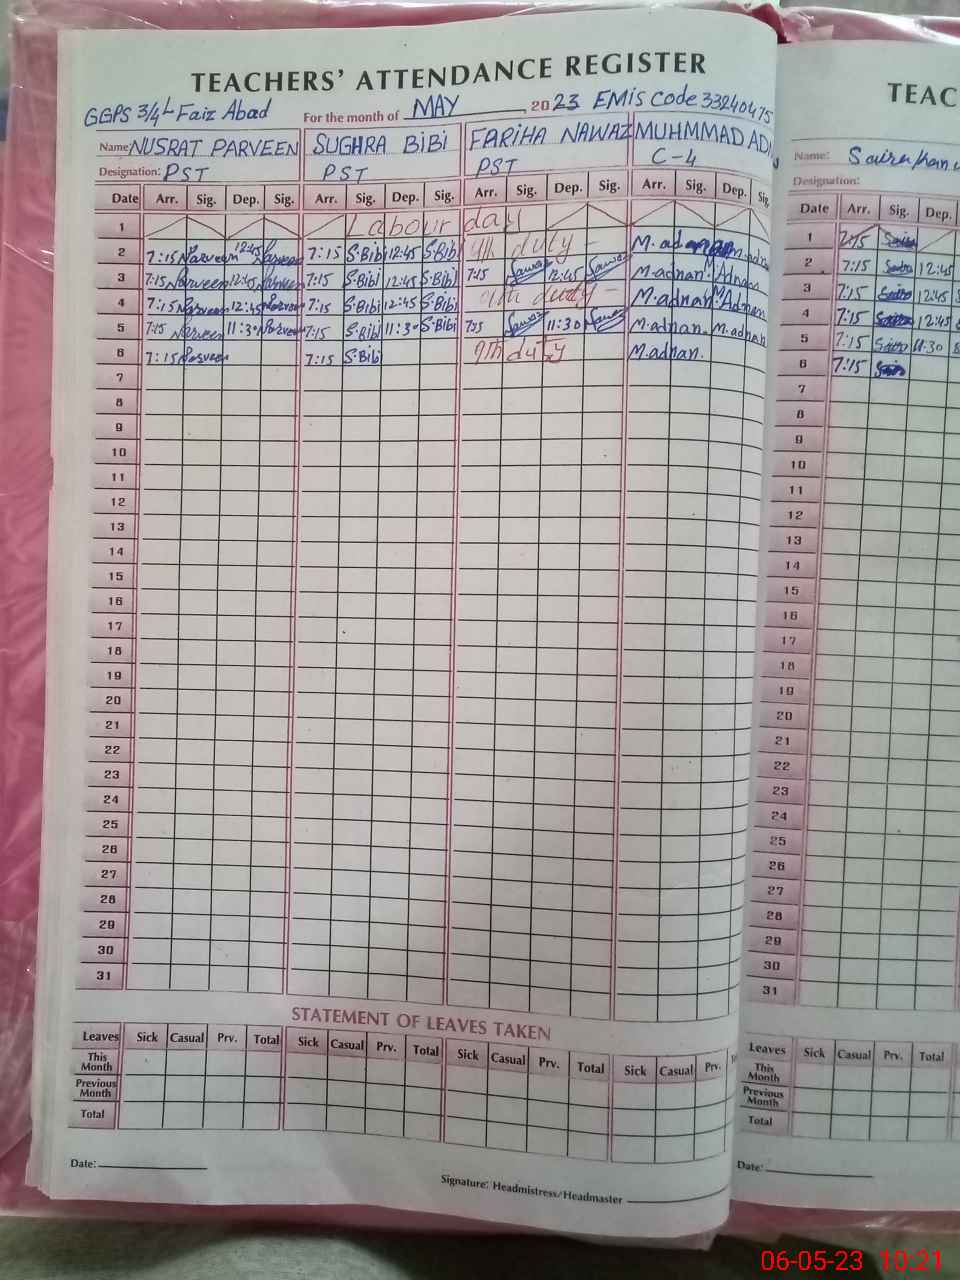 TEACHERS' ATTENDANCE REGISTER
GGPS 3/4L Faiz Abad For the month of MAY 2023 EMIS Code 33240475
Name: NUSRAT PARVEEN SUGHRA BIBI FARIHA NAWAZ MUHMMAD
Designation: PST PST PST C-4
Date Arr. Sig. Dep. Sig. Arr. Sig. Dep. Sig. Arr. Sig. Dep. Sig. Arr. Sig. Dep. Sig.
1 Labour day
2 7:15 Parveen 12:45 Parveen 7:15 S.Bibi 12:45 S.Bibi 9th duty - M.adnan
3 7:15 Parveen 12:45 Parveen 7:15 S.Bibi 12:45 S.Bibi 7:15 12:45 M.adnan. Adnan
4 7:15 Parveen 12:45 Parveen 7:15 S.Bibi 12:45 S.Bibi 9th duty - M.adnan M.Adnan
5 7:15 Parveen 11:30 Parveen 7:15 S.Bibi 11:30 S.Bibi 7:15 11:30 M.adnan. M.adnan
6 7:15 Parveen 7:15 S.Bibi 9th duty M.adnan.
7
8
9
10
11
12
13
14
15
16
17
18
19
20
21
22
23
24
25
26
27
28
29
30
31
STATEMENT OF LEAVES TAKEN
Leaves Sick Casual Prv. Total Sick Casual Prv. Total Sick Casual Prv. Total Sick Casual Prv.
This Month
Previous Month
Total
Date:
Signature: Headmistress/Headmaster
TEAC
Name: Saira
Designation:
Date Arr. Sig. Dep.
1 7:15
2 7:15 12:45
3 7:15 12:45
4 7:15 12:45
5 7:15 11:30
6 7:15
7
8
9
10
11
12
13
14
15
16
17
18
19
20
21
22
23
24
25
26
27
28
29
30
31
Leaves Sick Casual Prv. Total
This Month
Previous Month
Total
Date:
06-05-23 10:21